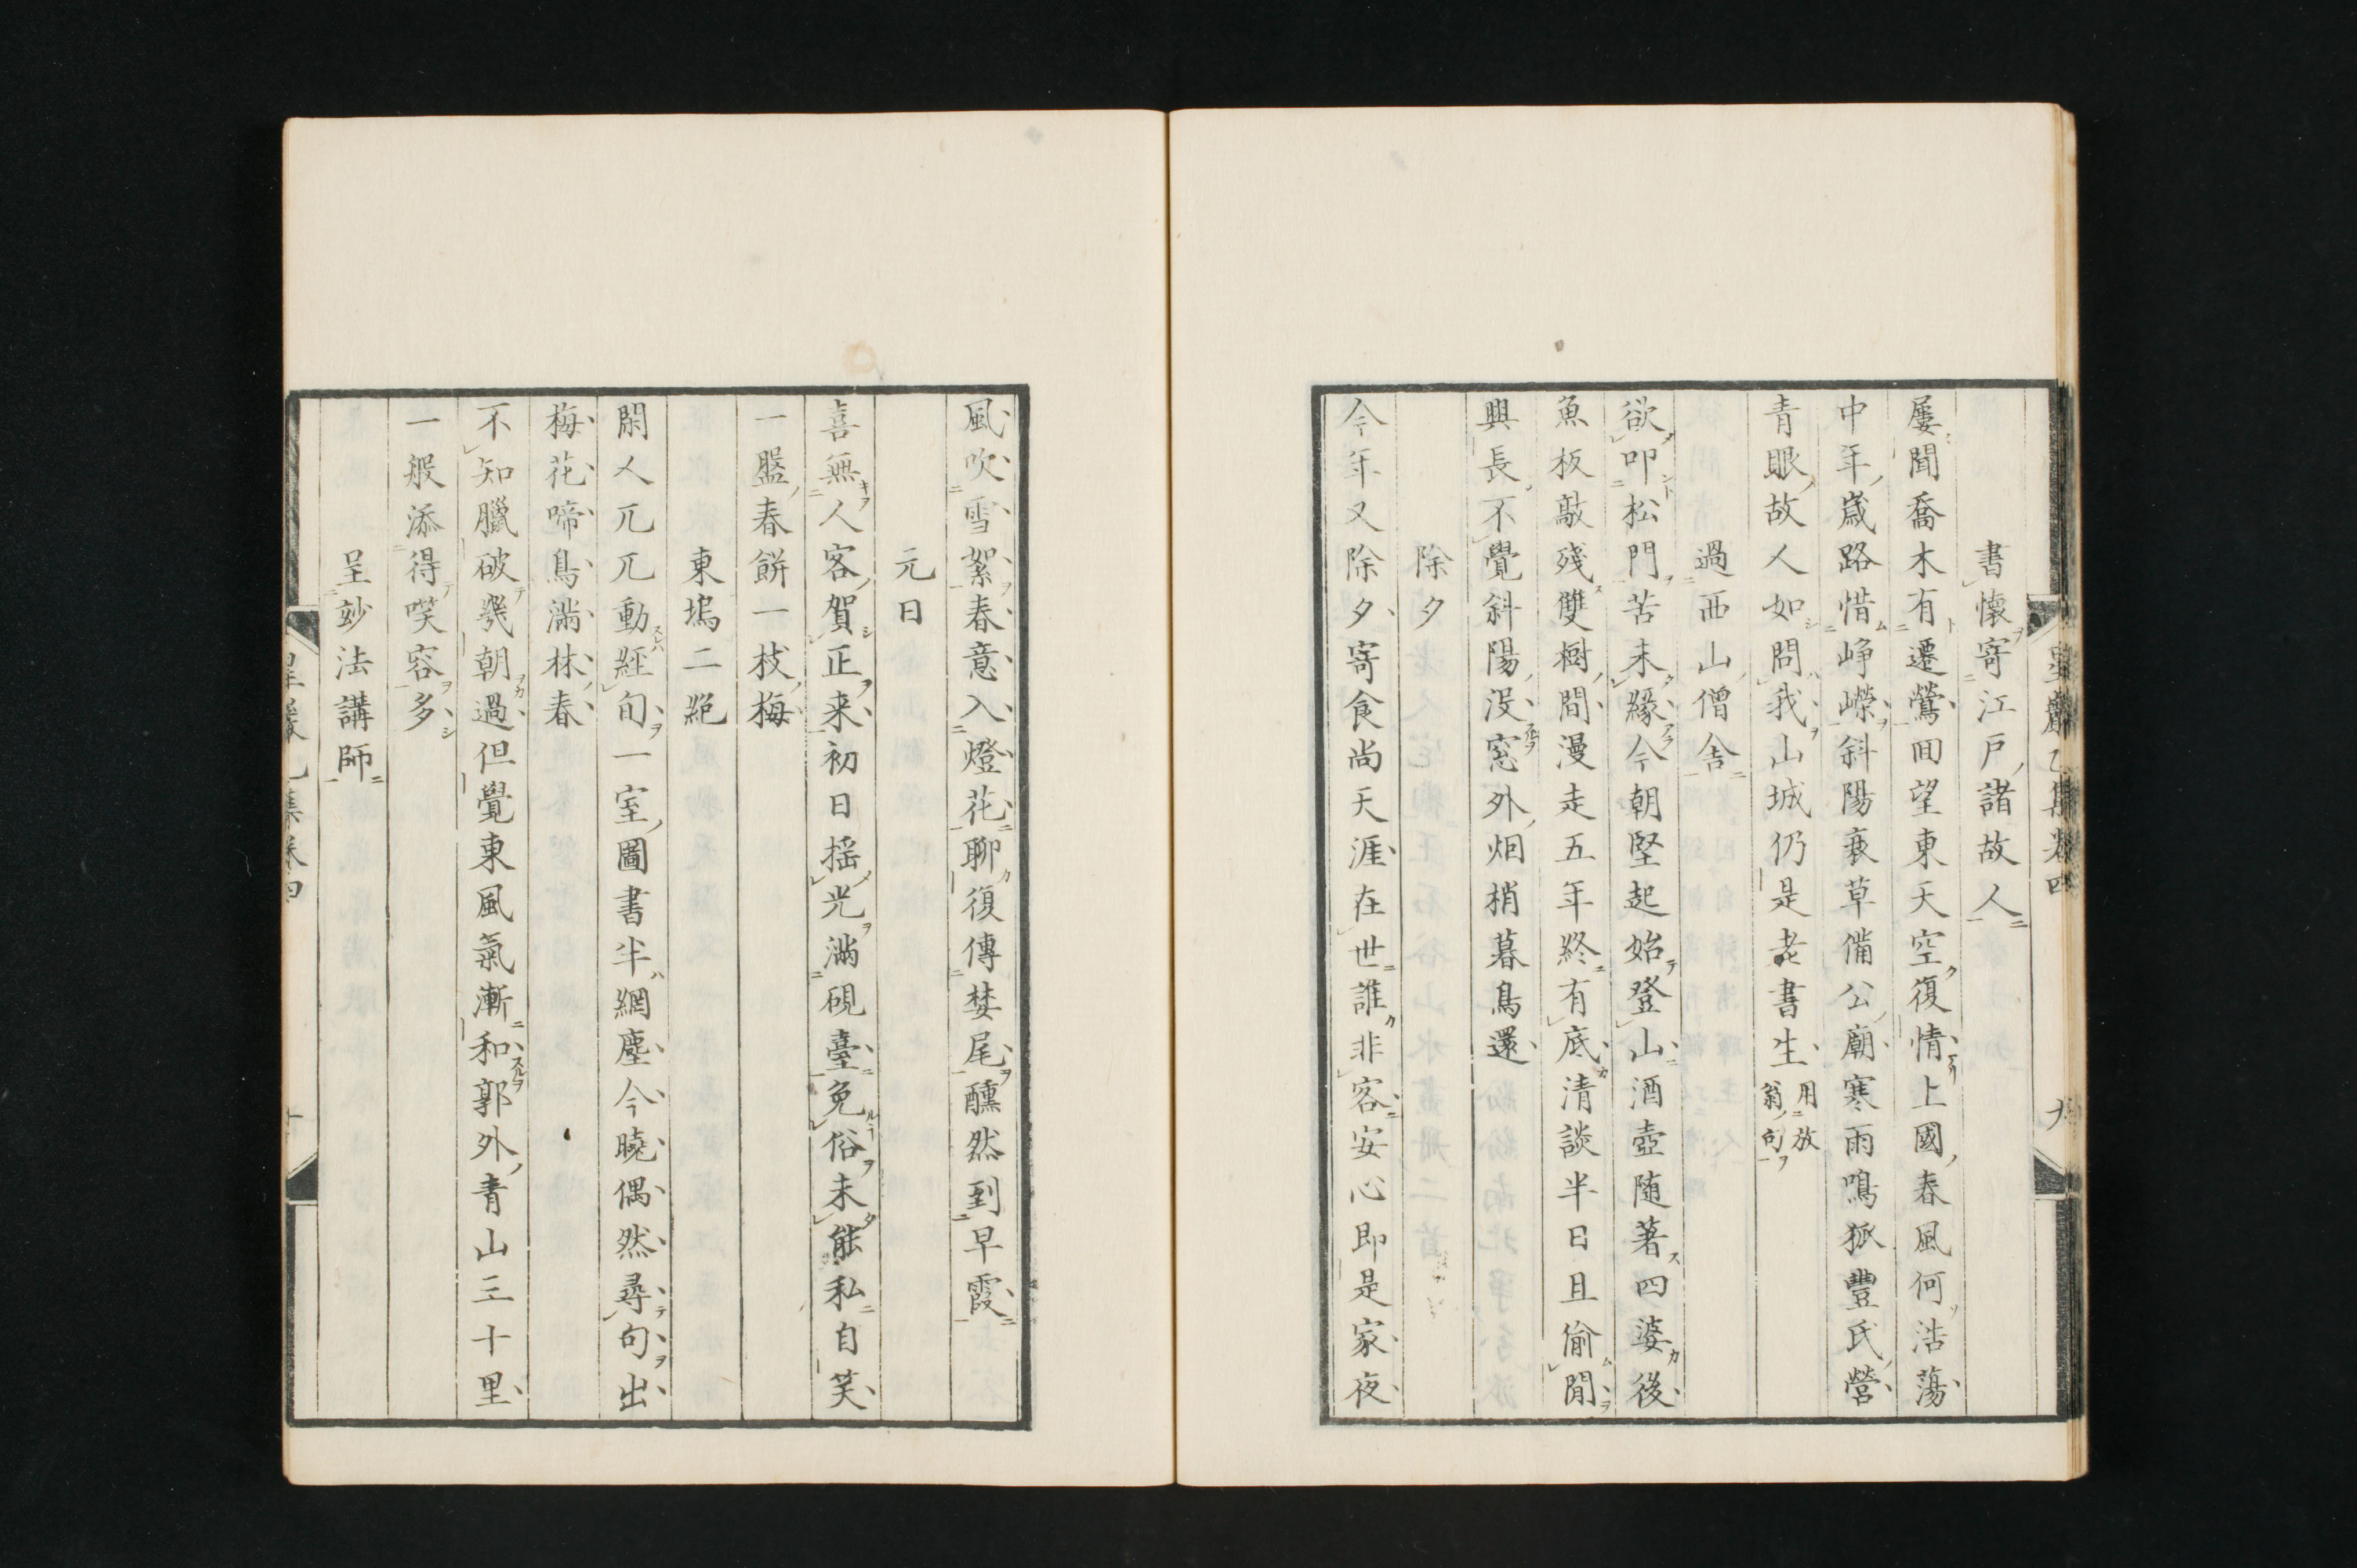 書懷寄江戸諸故人
屢聞喬木有遷鶯回望東天空復情上國春風何浩蕩
中年歳路惜崢嶸斜陽衰草備公廟寒雨鳴狐豐氏營
青眼故人如問我山城仍是老書生用放翁句
過西山僧舎
欲叩松門苦未縁今朝堅起始登山酒壺随著四婆後
魚板敲殘雙樹間漫走五年終有底清談半日且偷閒
興長不覺斜陽没窓外烟梢暮鳥還
除夕
今年又除夕寄食尚天涯在世誰非客安心即是家夜
星巖乙集卷四
九
風吹雪絮春意入燈花聊復傳婪尾醺然到早霞
元日
喜無人客賀正来初日揺光滿硯臺免俗未能私自笑
一盤春餅一枝梅
東塢二絶
閑人兀兀動經旬一室圖書半網塵今曉偶然尋句出
梅花啼鳥滿林春
不知臘破幾朝過但覺東風氣漸和郭外青山三十里
一般添得咲容多
呈妙法講師
星巖乙集卷四
十